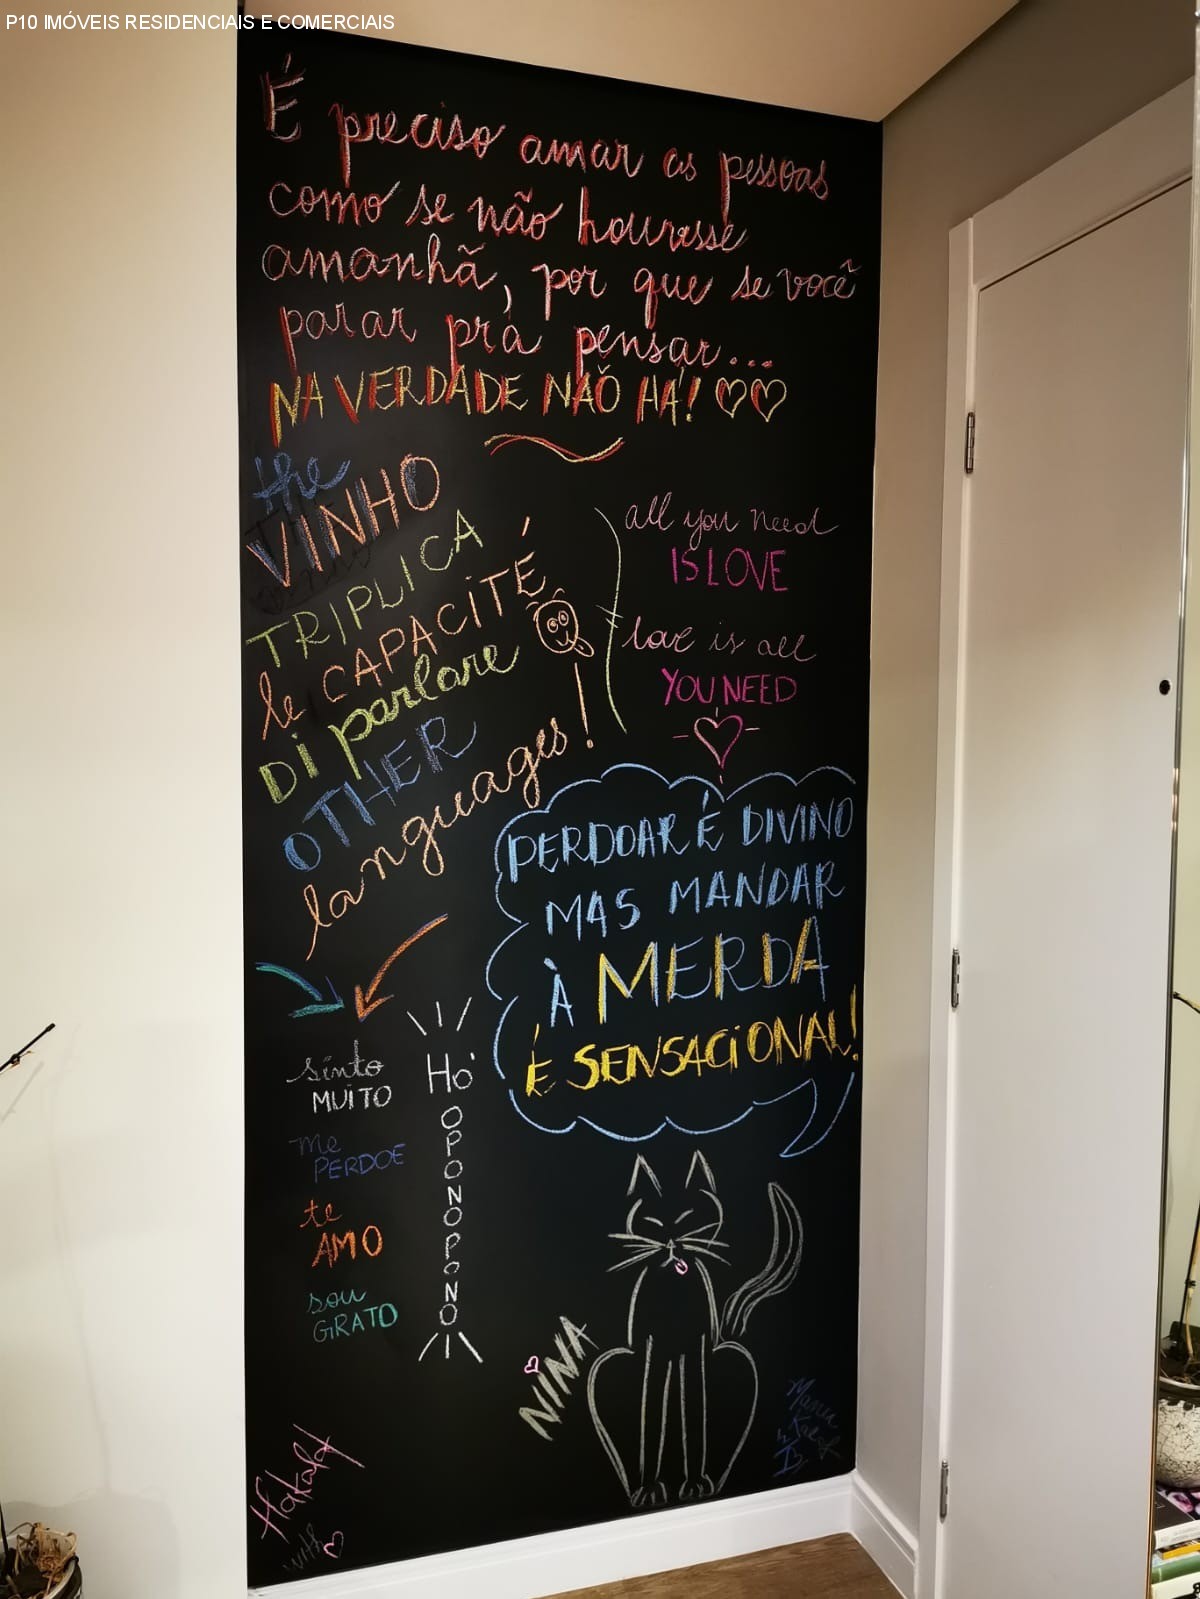 P10 IMÓVEIS RESIDENCIAIS E COMERCIAIS
É preciso amar as pessoas
como se não houvesse
amanhã, por que se você
parar pra pensar...
NA VERDADE NÃO HÁ! ♡♡
the
VINHO
TRIPLICA
le CAPACITÉ
Di parlare
OTHER
languages!
all you need
IS LOVE
love is all
YOU NEED
PERDOAR É DIVINO
MAS MANDAR
À MERDA
É SENSACIONAL!
sinto
MUITO
me
PERDOE
te
AMO
sou
GRATO
HÓ
O
P
O
N
O
P
O
N
O
NINA
with ♡